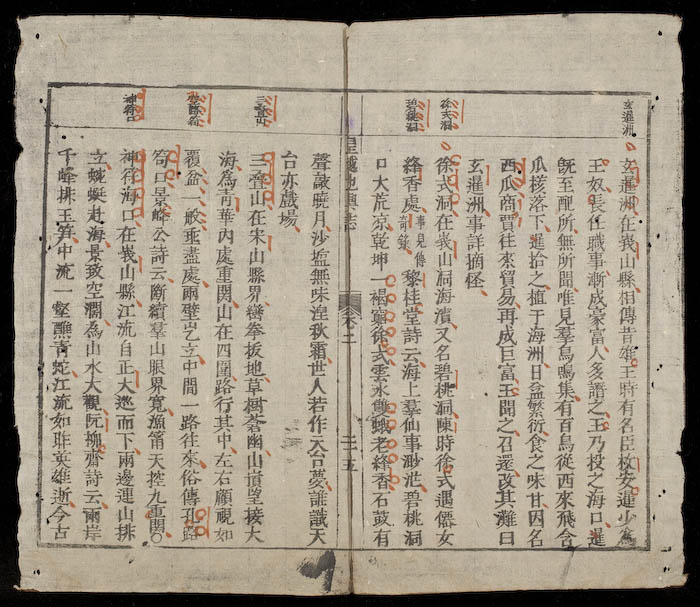 玄暹洲
玄暹洲在峩山縣相傳昔雄王時有名臣枚安暹少為
王奴長任職事漸成豪富人多譖之王乃投之海口暹
旣至配所無所聞唯見羣鳥鳴集有百鳥從西來飛含
瓜核落下暹拾之植于海洲日益繁衍食之味甘因名
西瓜商賈往來貿易再成巨富王聞之召還改其灘曰
玄暹洲事詳摘怪
徐式洞
徐式洞在峩山洞海濱又名碧桃洞陳時徐式遇僊女
碧桃洞
絳香處事見傳竒錄黎桂堂詩云海上羣仙事渺茫碧桃洞
口大荒凉乾坤一褐窮徐式雲水雙蛾老絳香石鼓有
皇越地輿志
卷二
二十五
聲敲曉月沙塩無味湟秋霜世人若作天台夢誰識天
台亦戲場
三疊山
三疊山在宋山縣界巒拳拔地草樹蒼幽山慣望接大
海為青華內處重関山在四圍路行其中左右顧視如
孔路笥
覆盆一般垂盡處兩壁屹立中間一路往來俗傳孔路
笥口景峰公詩云斷續羣山眼界寬漁笛天控九重関
神符口
神符海口在峩山縣江流自正大迤而下兩邊連山排
立蜿蜒赴海景致空濶為山水大觀阮柳齋詩云兩岸
千峰排玉笋中流一壑醮青蛇江流如昨英雄逝今古